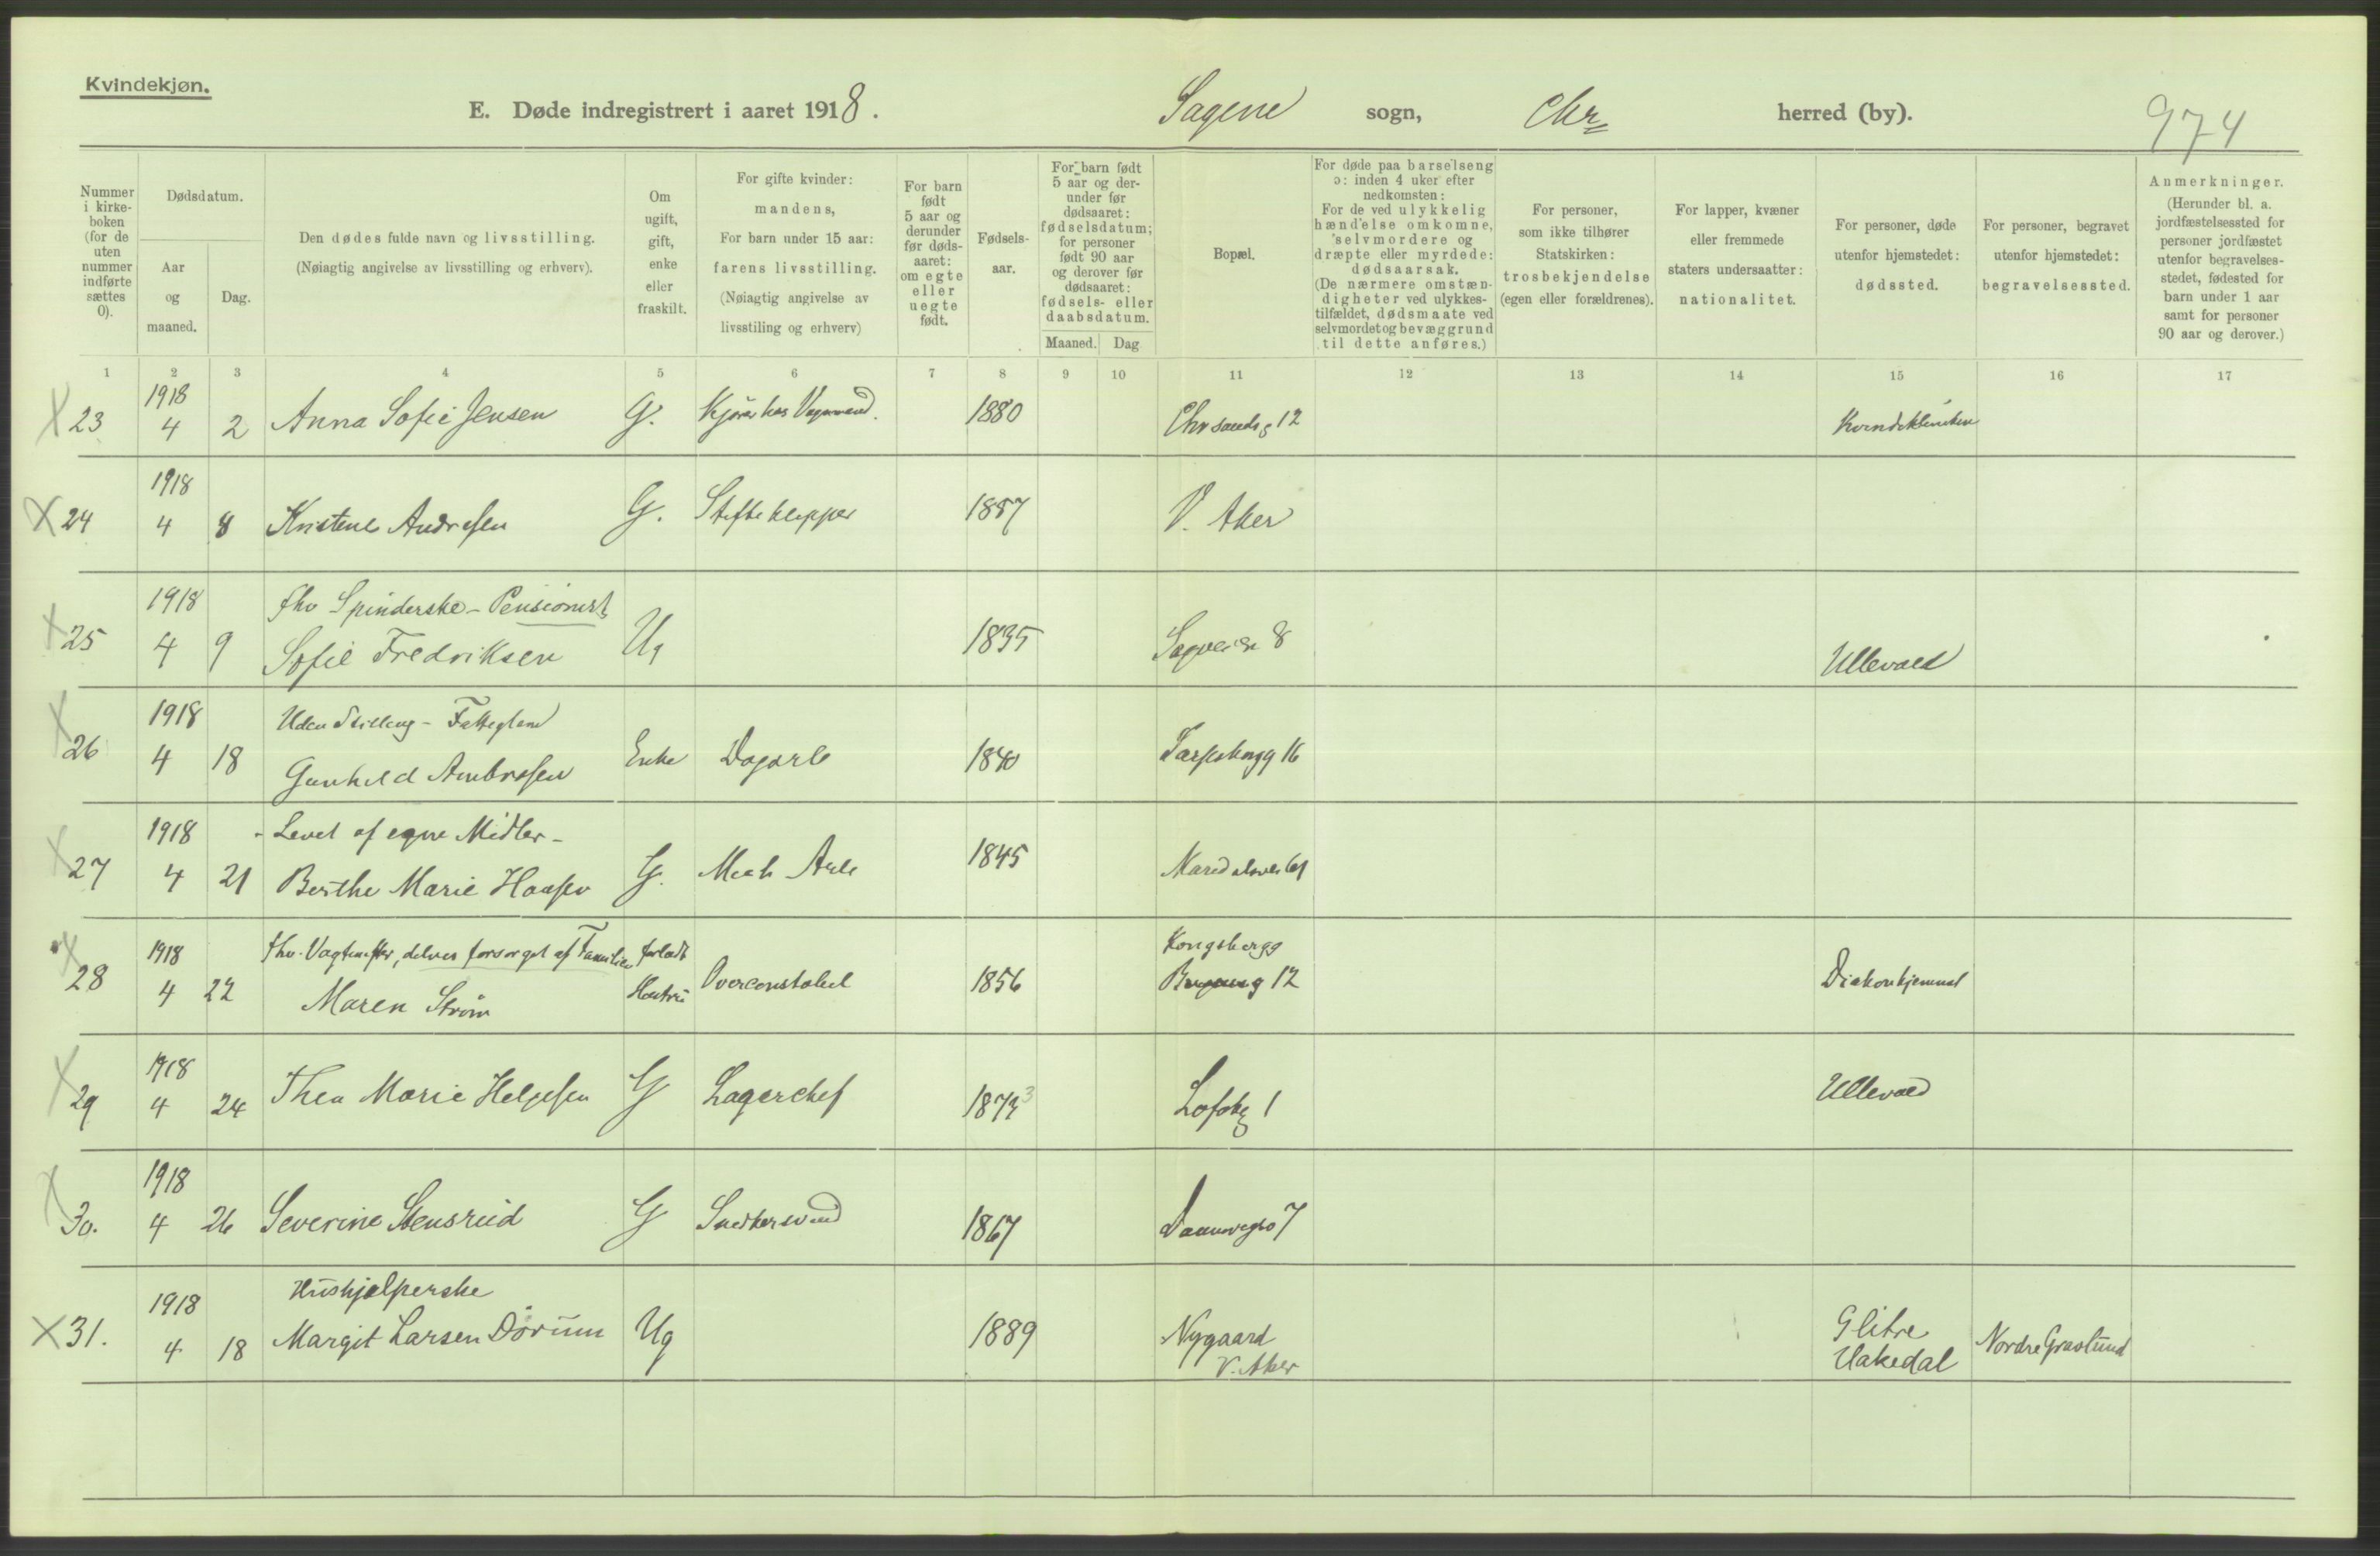 Kvindekjøn.
E. Døde indregistrert i aaret 1918.
Sagene sogn, Chr herred (by).
974
Nummer i kirke- boken (for de uten nummer indførte sættes 0).
Dødsdatum.
Aar og maaned.
Dag.
Den dødes fulde navn og livsstilling.
(Nøiagtig angivelse av livsstilling og erhverv).
Om ugift, gift, enke eller fraskilt.
For gifte kvinder: mandens,
For barn under 15 aar: farens livsstilling.
(Nøiagtig angivelse av livsstiling og erhverv)
For barn født 5 aar og derunder før døds- aaret: om egte eller uegte født.
Fødsels- aar.
For barn født 5 aar og der- under før dødsaaret: fødselsdatum; for personer født 90 aar og derover før dødsaaret: fødsels- eller daabsdatum.
Maaned. Dag
Bopæl.
For døde paa barselseng ɔ: inden 4 uker efter nedkomsten:
For de ved ulykkelig hændelse omkomne, selvmordere og dræpte eller myrdede: dødsaarsak.
(De nærmere omstæn- digheter ved ulykkes- tilfældet, dødsmaate ved selvmordet og bevæggrund til dette anføres.)
For personer, som ikke tilhører Statskirken: trosbekjendelse (egen eller forældrenes).
For lapper, kvæner eller fremmede staters undersaatter: nationalitet.
For personer, døde utenfor hjemstedet: dødssted.
For personer, begravet utenfor hjemstedet: begravelsessted.
Anmerkninger.
(Herunder bl. a. jordfæstelsessted for personer jordfæstet utenfor begravelses- stedet, fødested for barn under 1 aar samt for personer 90 aar og derover.)
1 2 3 4 5 6 7 8 9 10 11 12 13 14 15 16 17
1918
23 4 2 Anna Sofie Jensen G. Kjører hos Vognmand. 1880 Chrsandsg 12 Kvindeklinikken
1918
24 4 8 Kristine Andresen G. Stifteklepper 1857 V. Aker
1918 fhv Spinderske - Pensionist
25 4 9 Sofie Fredriksen Ug 1835 Sagveien 8 Ullevaal
1918 Uden Stilling - Fattiglem
26 4 18 Gunhild Ambrosen Enke Dagarb 1840 16
1918 - Levet af egne Midler -
27 4 21 Berthe Marie Hansen G. Mek Arb 1845 Maridalsvei 61
1918 fhv. delvis forsørget af Familien forladt Kongsbergg
28 4 22 Maren Strøm Hustru Overconstabel 1856 12 Diakonhjemmet
1918
29 4 24 Thea Marie Helgesen G Lagerchef 1873 3 Lofotg 1 Ullevaal
1918
30. 4 26 Severine Stensrud G Snedkersvend 1867 7
1918 Hushjælperske
31. 4 18 Margit Larsen Dørum Ug 1889 Nygaard V. Aker Glitre Hakedal Nordre